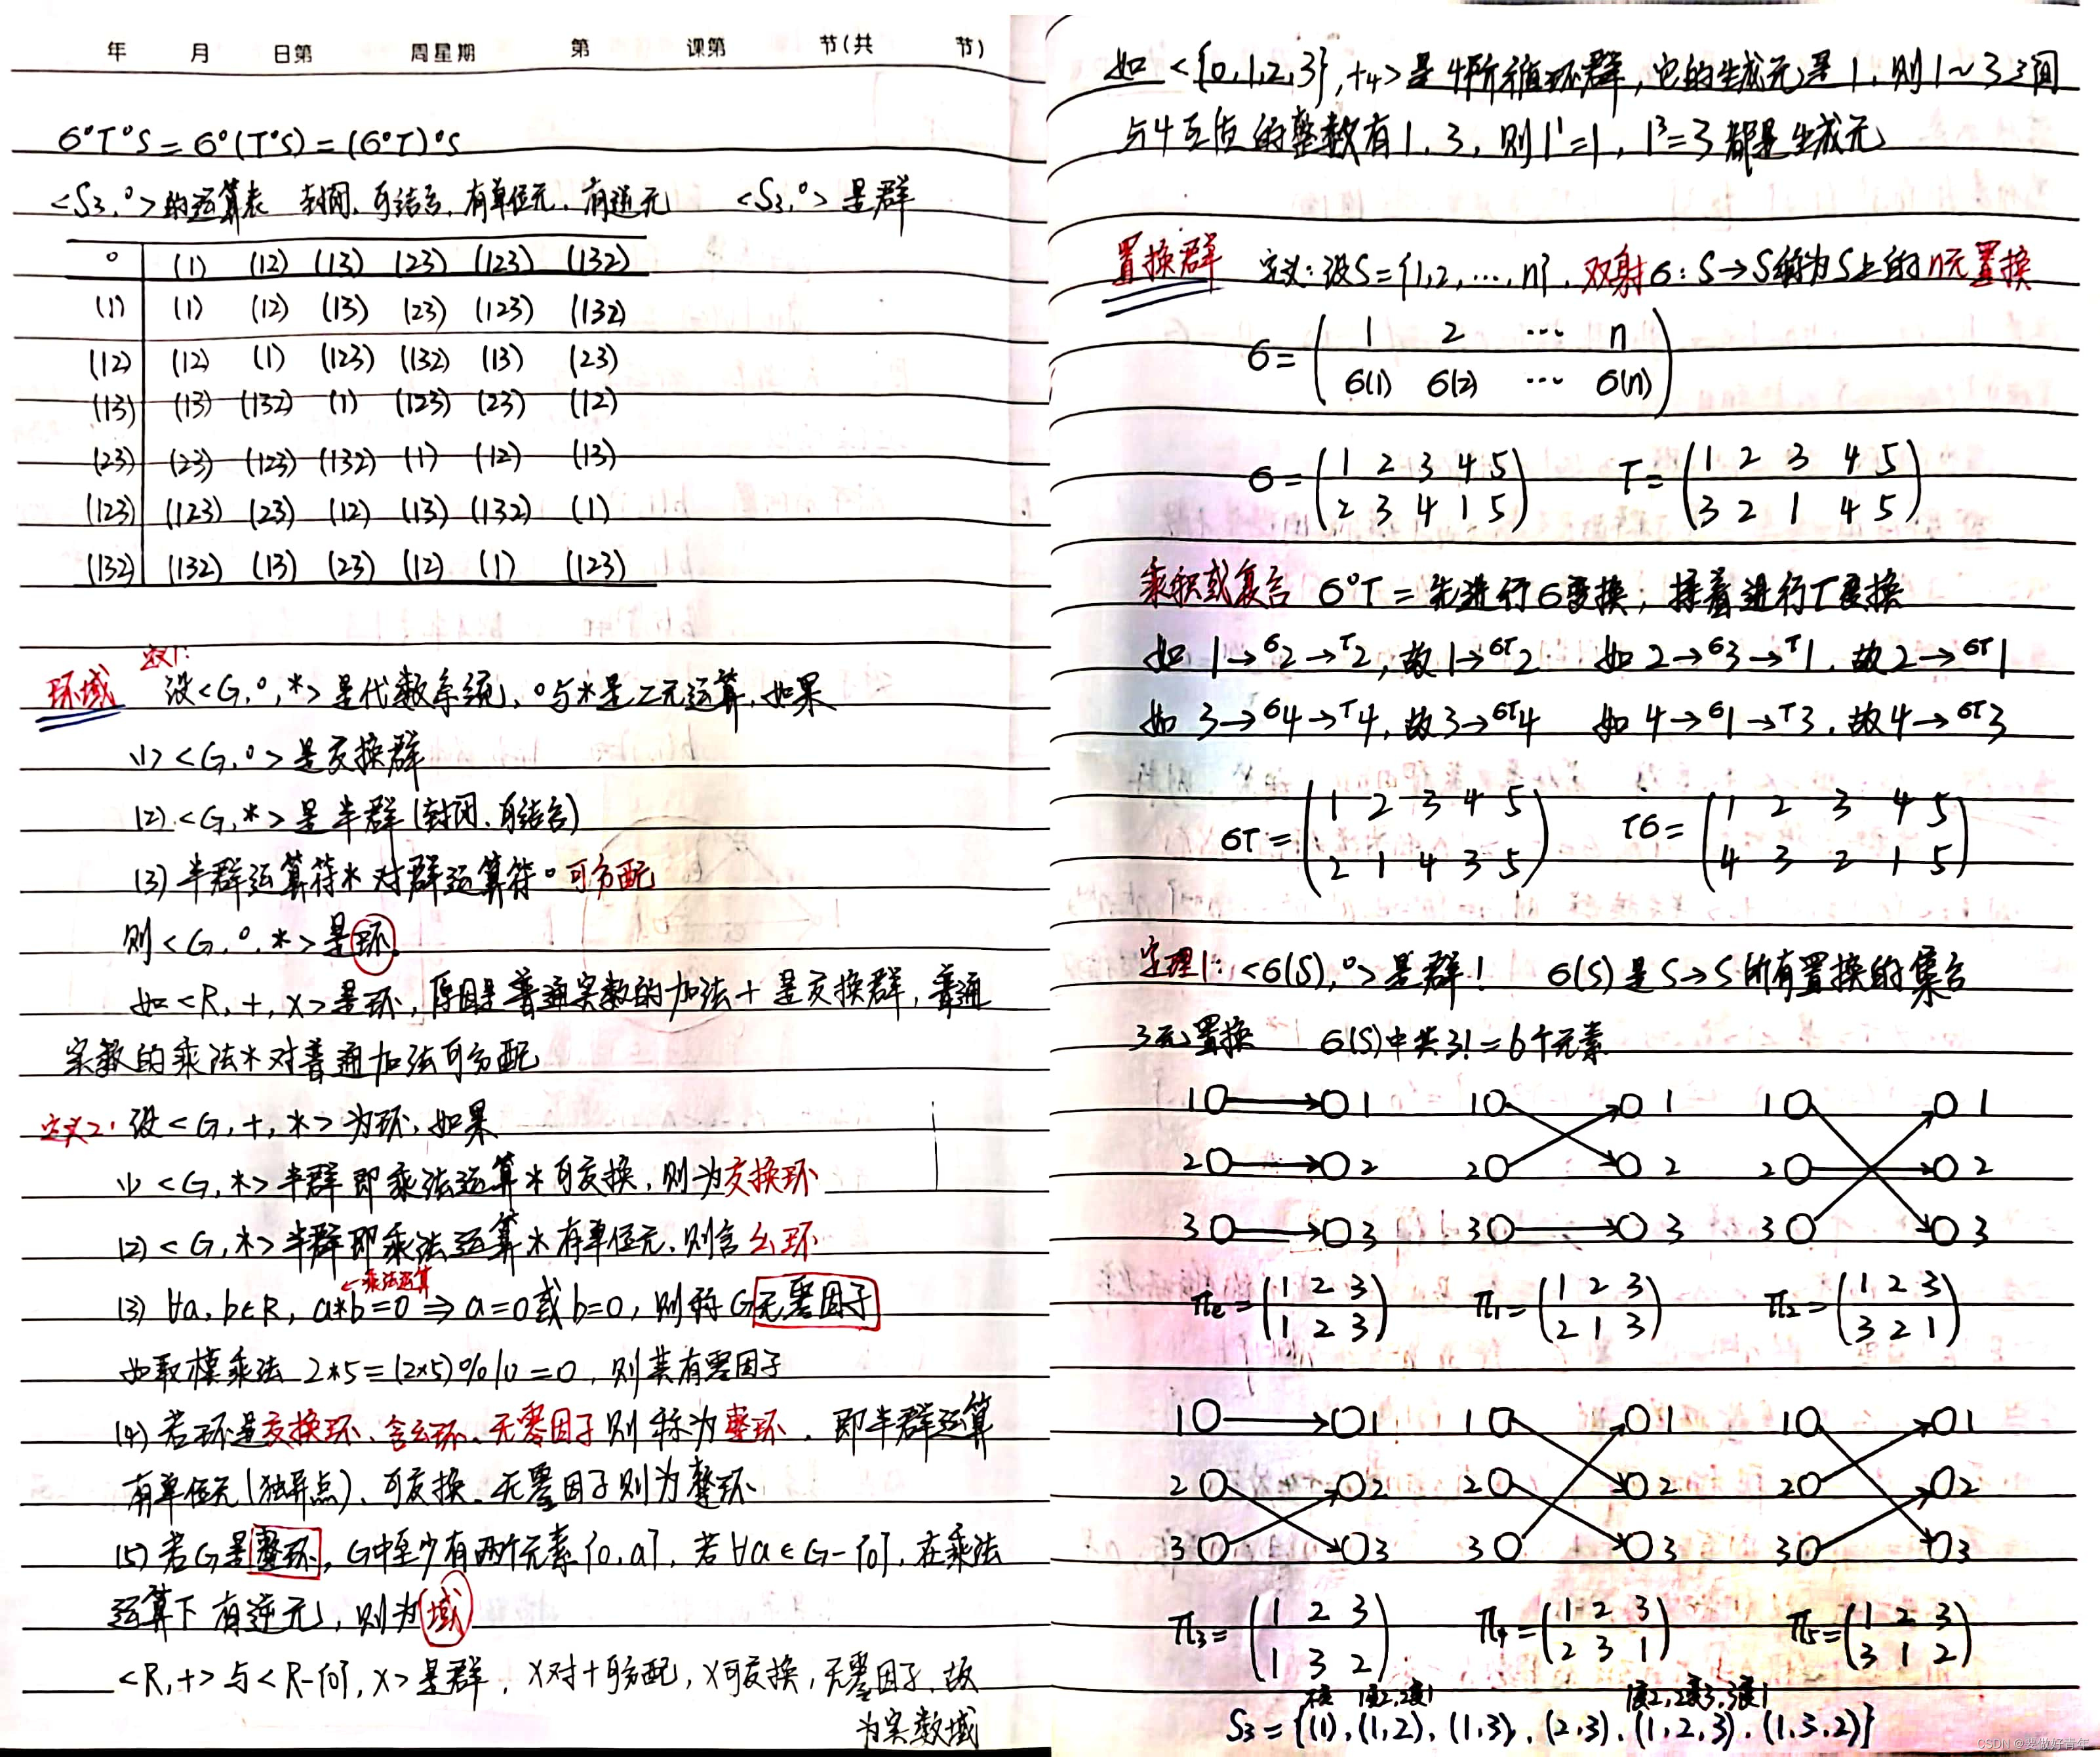 年 月 日第 周星期 第 课第 节(共 节)
6°T°S=6°(T°S)=(6°T)°S
<S3,°>的运算表 封闭,可结合,有单位元,有逆元 <S3,°>是群
° (1) (12) (13) (23) (123) (132)
(1) (1) (12) (13) (23) (123) (132)
(12) (12) (1) (123) (132) (13) (23)
(13) (13) (132) (1) (123) (23) (12)
(23) (23) (123) (132) (1) (12) (13)
(123) (123) (23) (12) (13) (132) (1)
(132) (132) (13) (23) (12) (1) (123)
定义1:
环域 设<G,°,*>是代数系统,°与*是二元运算,如果
(1)<G,°>是交换群
(2)<G,*>是半群(封闭、可结合)
(3)半群运算符*对群运算符°可分配
则<G,°,*>是环
如<R,+,×>是环,原因是普通实数的加法+是交换群,普通
实数的乘法*对普通加法可分配
定义2:设<G,+,*>为环,如果
(1)<G,*>半群即乘法运算*可交换,则为交换环
(2)<G,*>半群即乘法运算*有单位元,则含幺环
←乘法运算
(3)∀a,b∈R,a*b=0⇒a=0或b=0,则称G无零因子
如取模乘法 2*5=(2×5)%10=0,则其有零因子
(4)若环是交换环、含幺环、无零因子则称为整环,即半群运算
有单位元(独异点)、可交换、无零因子则为整环
(5)若G是整环,G中至少有两个元素{0,a},若∀a∈G-{0},在乘法
运算下有逆元,则为域
<R,+>与<R-{0},×>是群,×对+可分配,×可交换,无零因子,故
为实数域
如<{0,1,2,3},+4>是4阶循环群,它的生成元是1,则1~3之间
与4互质的整数有1,3,则1¹=1,1³=3都是生成元
置换群 定义:设S={1,2,…,n},双射6:S→S称为S上的n元置换
6=(1 2 … n
6(1) 6(2) … 6(n))
6=(1 2 3 4 5 T=(1 2 3 4 5
2 3 4 1 5) 3 2 1 4 5)
乘积或复合 6°T=先进行6变换,接着进行T变换
如 1→⁶2→ᵀ2,故1→⁶ᵀ2 如 2→⁶3→ᵀ1,故2→⁶ᵀ1
如 3→⁶4→ᵀ4,故3→⁶ᵀ4 如 4→⁶1→ᵀ3,故4→⁶ᵀ3
6T=(1 2 3 4 5 T6=(1 2 3 4 5
2 1 4 3 5) 4 3 2 1 5)
定理1:<6(S),°>是群! 6(S)是S→S所有置换的集合
3元置换 6(S)中共3!=6个元素
1 1 1 1 1 1
2 2 2 2 2 2
3 3 3 3 3 3
πe=(1 2 3 π1=(1 2 3 π2=(1 2 3
1 2 3) 2 1 3) 3 2 1)
1 1 1 1 1 1
2 2 2 2 2 2
3 3 3 3 3 3
π3=(1 2 3 π4=(1 2 3 π5=(1 2 3
1 3 2) 2 3 1) 3 1 2)
1变2,2变1 1变2,2变3,3变1
S3={(1),(1,2),(1,3),(2,3),(1,2,3),(1,3,2)}
CSDN @要做好青年